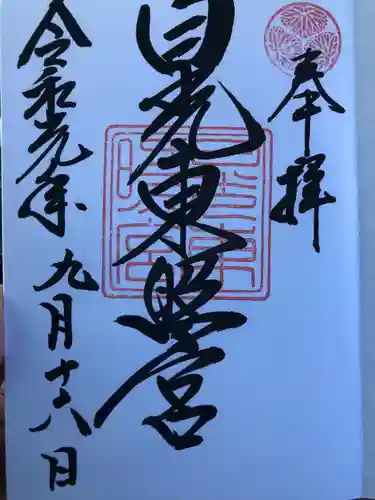 奉拝
日光東照宮
令和元年九月十六日